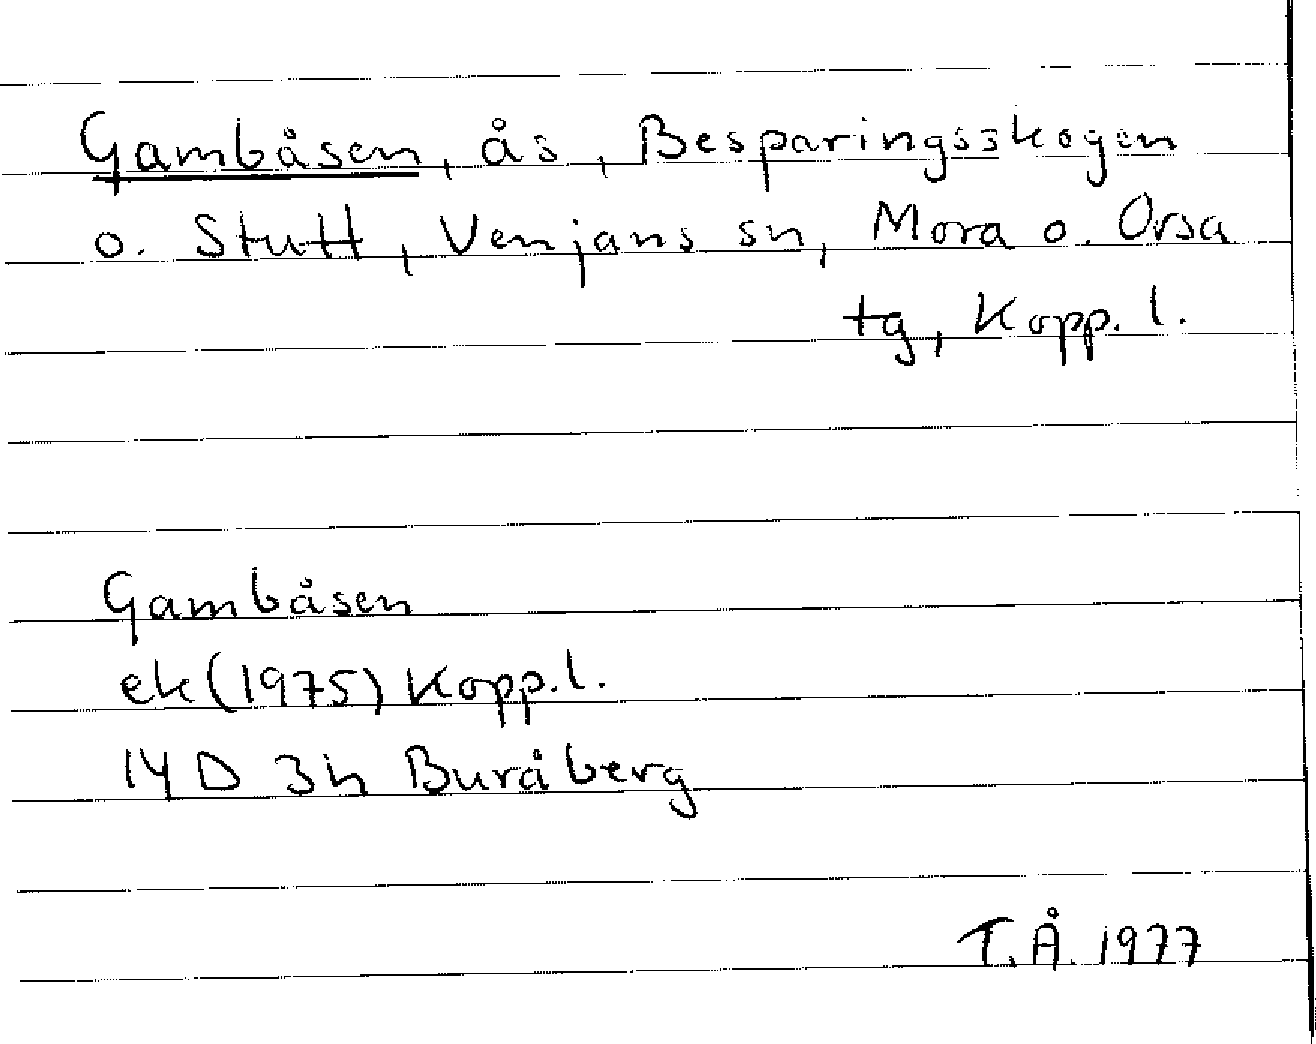 Gambåsen, ås, Besparingsskogen
o. Stutt, Venjans sn, Mora o. Orsa
tg, Kopp. l.
Gambåsen
ek (1975) Kopp. l.
14 D 3h Buråberg
T.Å. 1977